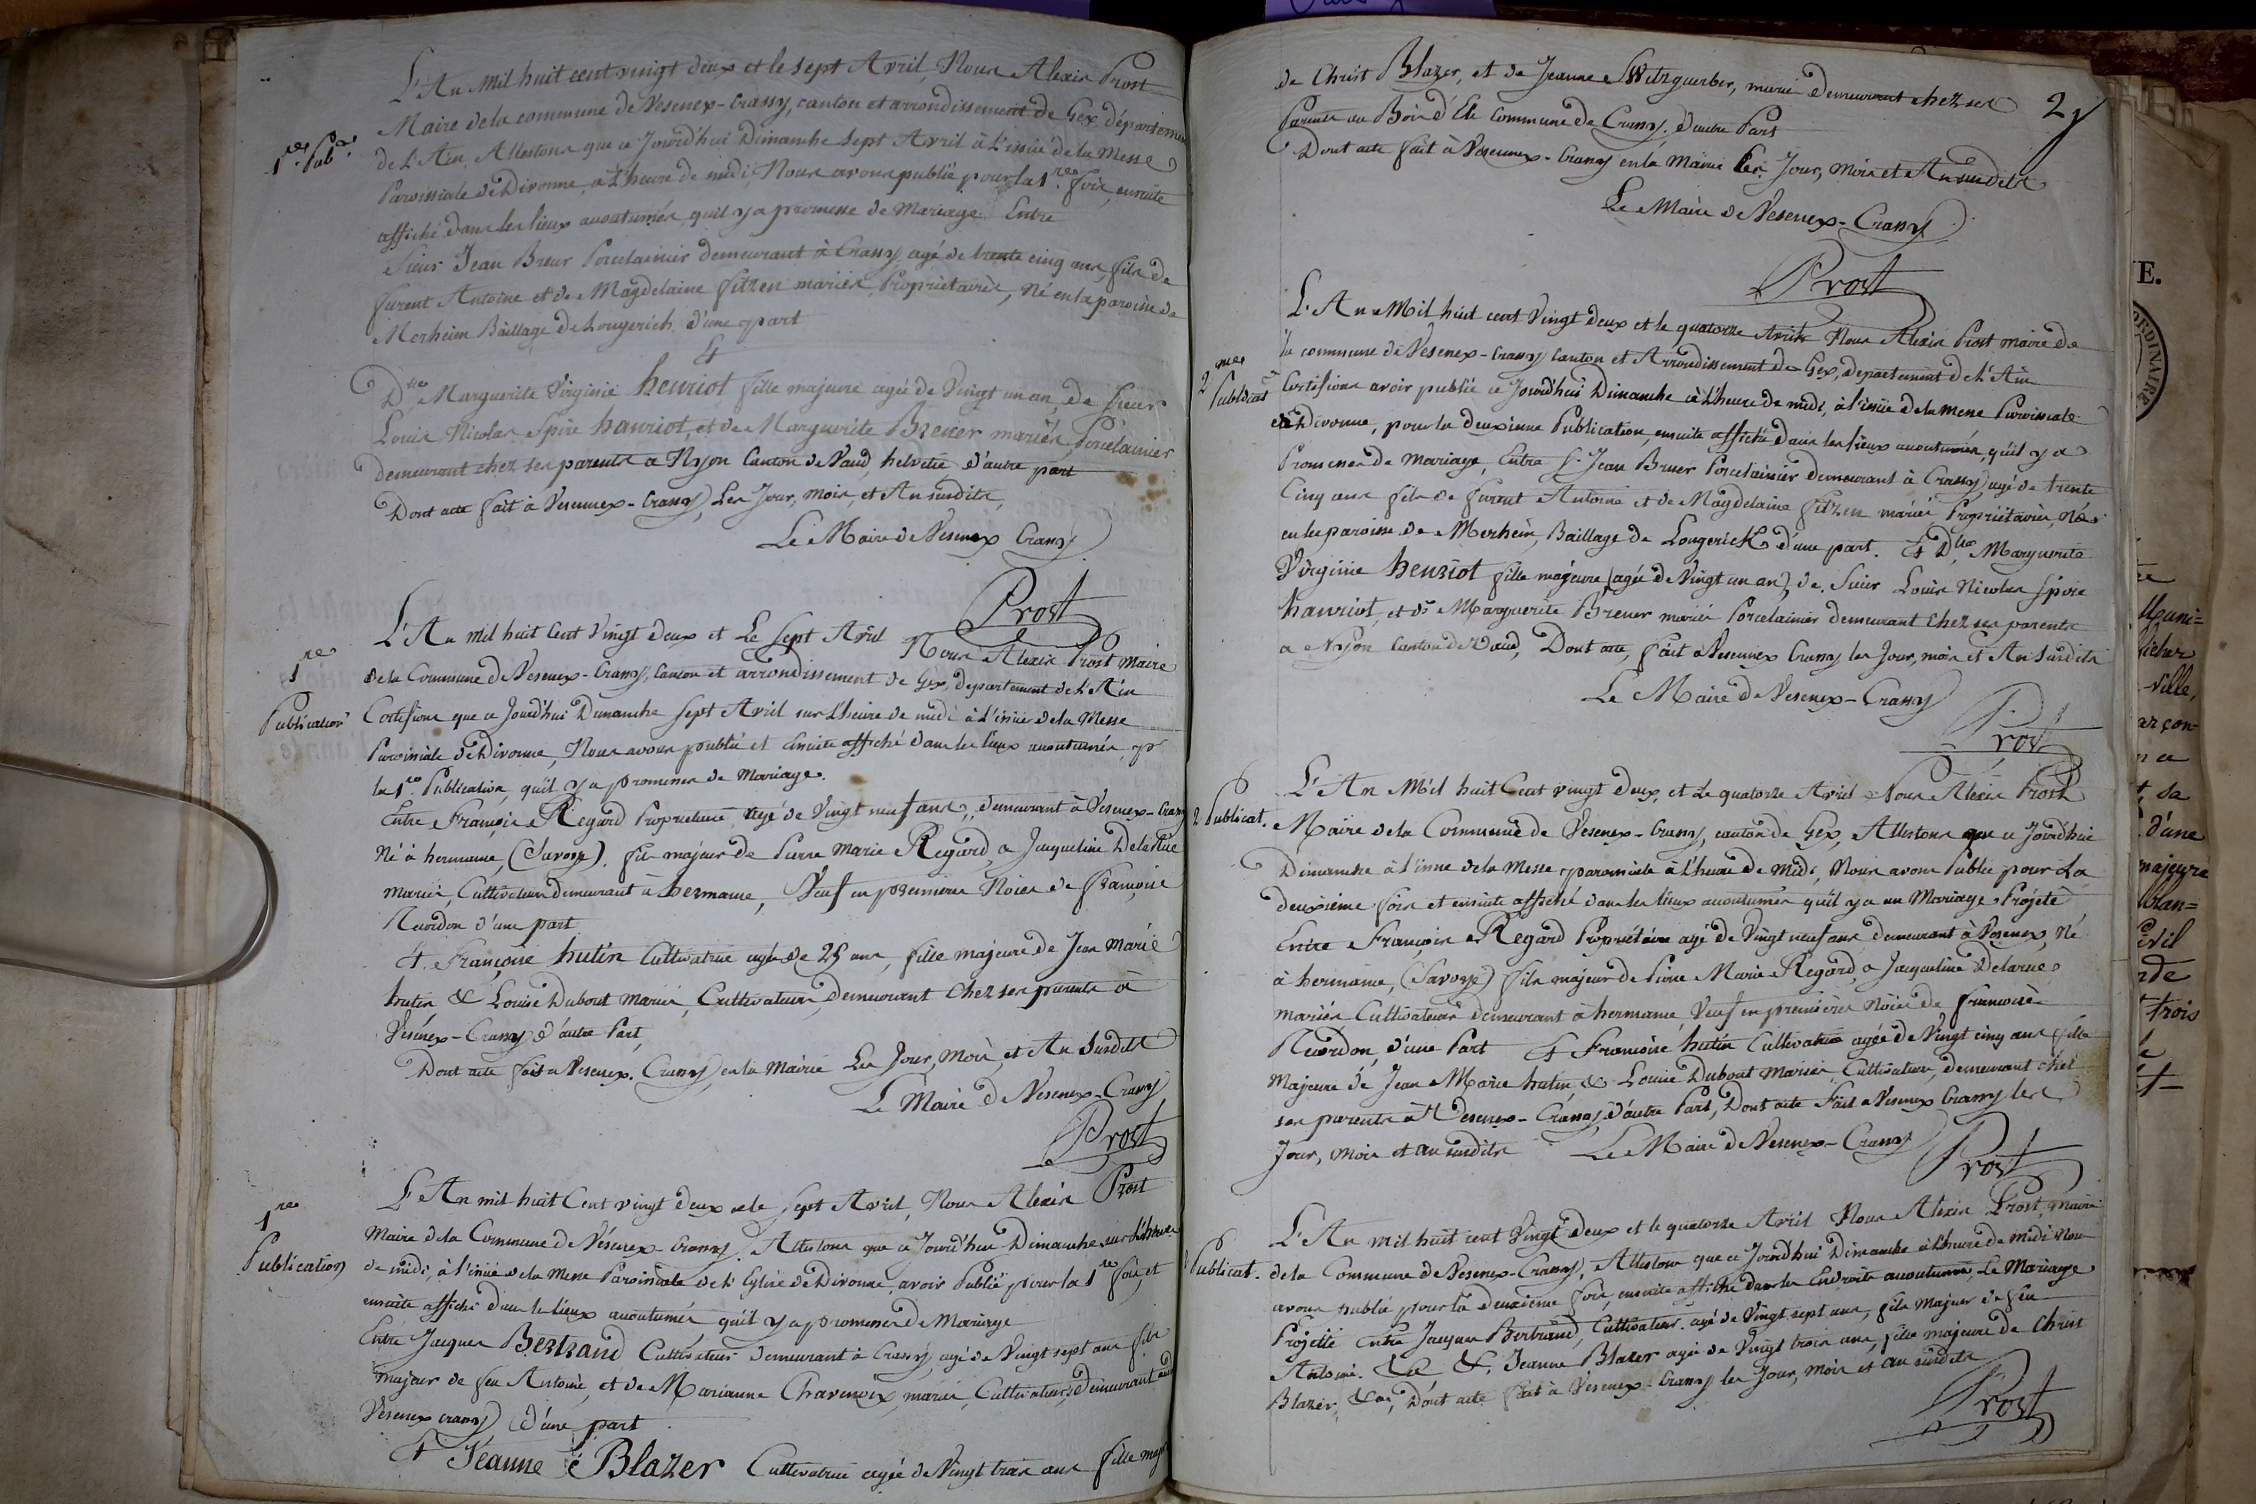 L'An mil huit cent vingt deux et le sept Avril Nous Alexis Prost
Maire de la commune de Vesenex-Crassy, canton et arrondissement de Gex départemen
1re Pub.
de L'Ain, Attestons que ce Jourd'hui Dimanche sept Avril à L'issüe de la Messe
Paroissiale de Divonne, à L'heure de midi, Nous avons publié pour la 1re fois, ensuite
affiché dans les lieux accoutumés, quil y a promesse de Mariage Entre
Sieur Jean Breur Porcelainier demeurant à Crassy, agé de trente cinq ans, fils de
furent Antoine et de Magdelaine fitzen mariés Proprietaires, Né en la paroisse de
Merheim Baillage de Lougerich, d'une part
&
Dlle Marguerite Virginie henriot fille majeure agée de Vingt un an, de Sieur
Louis Nicolas Spire hanriot, et de Marguerite Brener mariés, Porcelainier
demeurant chez ses parents a Nyon Canton de Vaud, helvetie d'autre part
Dont acte fait à Vesennex-Crassy, Les Jour, mois, et An susdits,
Le Maire de Vesenex Crassy
Prost
L'An mil huit Cent Vingt deux et Le Sept Avril Nous Alexis Prost Maire
1re
Publication
de la Commune de Vesenex-Crassy, Canton et arrondissement de Gex, département de L'Ain
Certifions que ce Jourd'hui Dimanche sept Avril sur L'heure de midi à L'issüe de la Messe
Paroissiale de Divonne, Nous avons publié et Ensuite affiché dans les lieux accoutumés, pr
la 1re Publication, qu'il y a promesses de Mariage.
Entre François Regard Proprietaire agé de Vingt neuf ans, demeurant à Vesenex-Crassy
Né à hermance, (Savoye). fils majeur de Pierre Marie Regard, a Jacqueline Delarüe
mariés, Cultivateurs demeurant à hermance, Veuf en premieres Noces de françoise
Revordon d'une part
&. Françoise hutin Cultivatrice agée de 25 ans, fille majeure de Jean Marie
hutin & Louise Dubout mariés, Cultivateurs, demeurant Chez ses parents à
Vesenex-Crassy d'autre Part,
Dont acte fait a Vesenex-Crassy, en la Mairie Les Jour, Mois, et An Susdits
Le Maire de Vesenex-Crassy
Prost
L'An mil huit Cent vingt deux et le Sept Avril, Nous Alexis Prost
1re
Publication
Maire de la Commune de Vésenex-Crassy. Attestons que ce Jourd'hui Dimanche, sur L'heure
de midi, à l'issüe de la Messe Paroissiale de L'Eglise de Divonne, avoir Publié pour la 1re fois et
ensuite affiché dans le lieux accoutumés qu'il y a promesse de Mariage
Entre Jacques Bertrand Cultivateur demeurant à Crassy, agé de Vingt sept ans fils
majeur de feu Antoine, et de Marianne Chavenoix, mariés, Cultivateurs, demeurant
Vesenex crassy d'une part
& Jeanne Blazer Cultivatrice agée de Vingt trois ans fille maj
2
de Christ Blazer, et de Jeanne Switzguerber, mariés demeurant chez ses
Parents au Bois d'Ele Commune de Crassy. d'autre Part
Dont acte fait à Vesennex-Crassy en la Mairie Les Jour, Mois et An susdits
Le Maire de Vesenex-Crassy
Prost
L'An Mil huit cent Vingt deux et le quatorze Avril Nous Alexis Prost maire de
la commune de Vesenex-Crassy Canton et Arrondissement de Gex, departement de L'Ain
2me
Publicat.
Certifions avoir publié ce Jourd'hui Dimanche à L'heure de midi, à l'issüe de la messe Paroissiale
de Divonne, pour la deuxieme Publication, ensuite affiché dans les lieux accoutumés, qu'il y a
Promesses de Mariage, Entre Sr Jean Bruer Porcelainier demeurant à Crassy, agé de trente
Cinq ans fils de furent Antoine et de Magdelaine fitzen mariés Proprietaires, Né
en la paroisse de Merheim, Baillage de Lougerick d'une part. & Dlle Marguerite
Virginie henriot fille majeure (agée de Vingt un an), de Sieur Louis Nicolas Spire
hanriot, et de Marguerite Brener mariés Porcelainier demeurant Chez ses parents
a Nyon Canton de Vaud, Dont acte, fait a Vesennex Crassy les Jour, mois et An Susdits
Le Maire de Vesenex-Crassy
Prost
L'An Mil huit Cent vingt deux, et Le quatorze Avril Nous Alexis Prost
2 Publicat.
Maire de la Commune de Vesenex-Crassy, canton de Gex, Attestons que ce Jourd'hui
Dimanche à l'issue de la Messe paroissiale à L'heure de Midi, Nous avons Publié pour La
deuxieme fois et ensuite affiché dans les lieux accoutumés qu'il y a un Mariage Projeté
Entre François Regard Propriétaire agé de Vingt neuf ans demeurant à Vesenex, Né
à hermance, (Savoye) fils majeur de Pierre Marie Regard, a Jacqueline Delarue
mariés Cultivateurs demeurant à hermance, Veuf en premières Nôces de françoise
Revordon, d'une Part & Françoise hutin Cultivatrice agée de Vingt cinq ans fille
Majeure de Jean Marie hutin, & Louise Dubout Mariés, Cultivateurs, demeurant chez
ses parents à Vesenex-Crassy, d'autre Part, Dont acte Fait a Vesenex Crassy les
Jour, mois et an susdits Le Maire de Vesenex-Crassy
Prost
L'An mil huit cent Vingt deux et le quatorze Avril Nous Alexis Prost, maire
Publicat.
de la Commune de Vesenex-Crassy, Attestons que ce Jourd'hui Dimanche à L'heure de Midi Nous
avons publié pour la deuxieme fois, ensuite affiché dans les Endroits accoutumés, Le Mariage
Projetté Entre Jacques Bertrand, Cultivateur agé de Vingt sept ans, fils Majeur de feu
Antoine. &a. &. Jeanne Blazer agée de Vingt trois ans, fille majeure de Christ
Blazer, &a, Dont acte fait à Vesenex-Crassy les Jour, Mois et an susdits
Prost
E.
ORDINAIRE
ville,
arçon
sa
d'une
majeure
trois